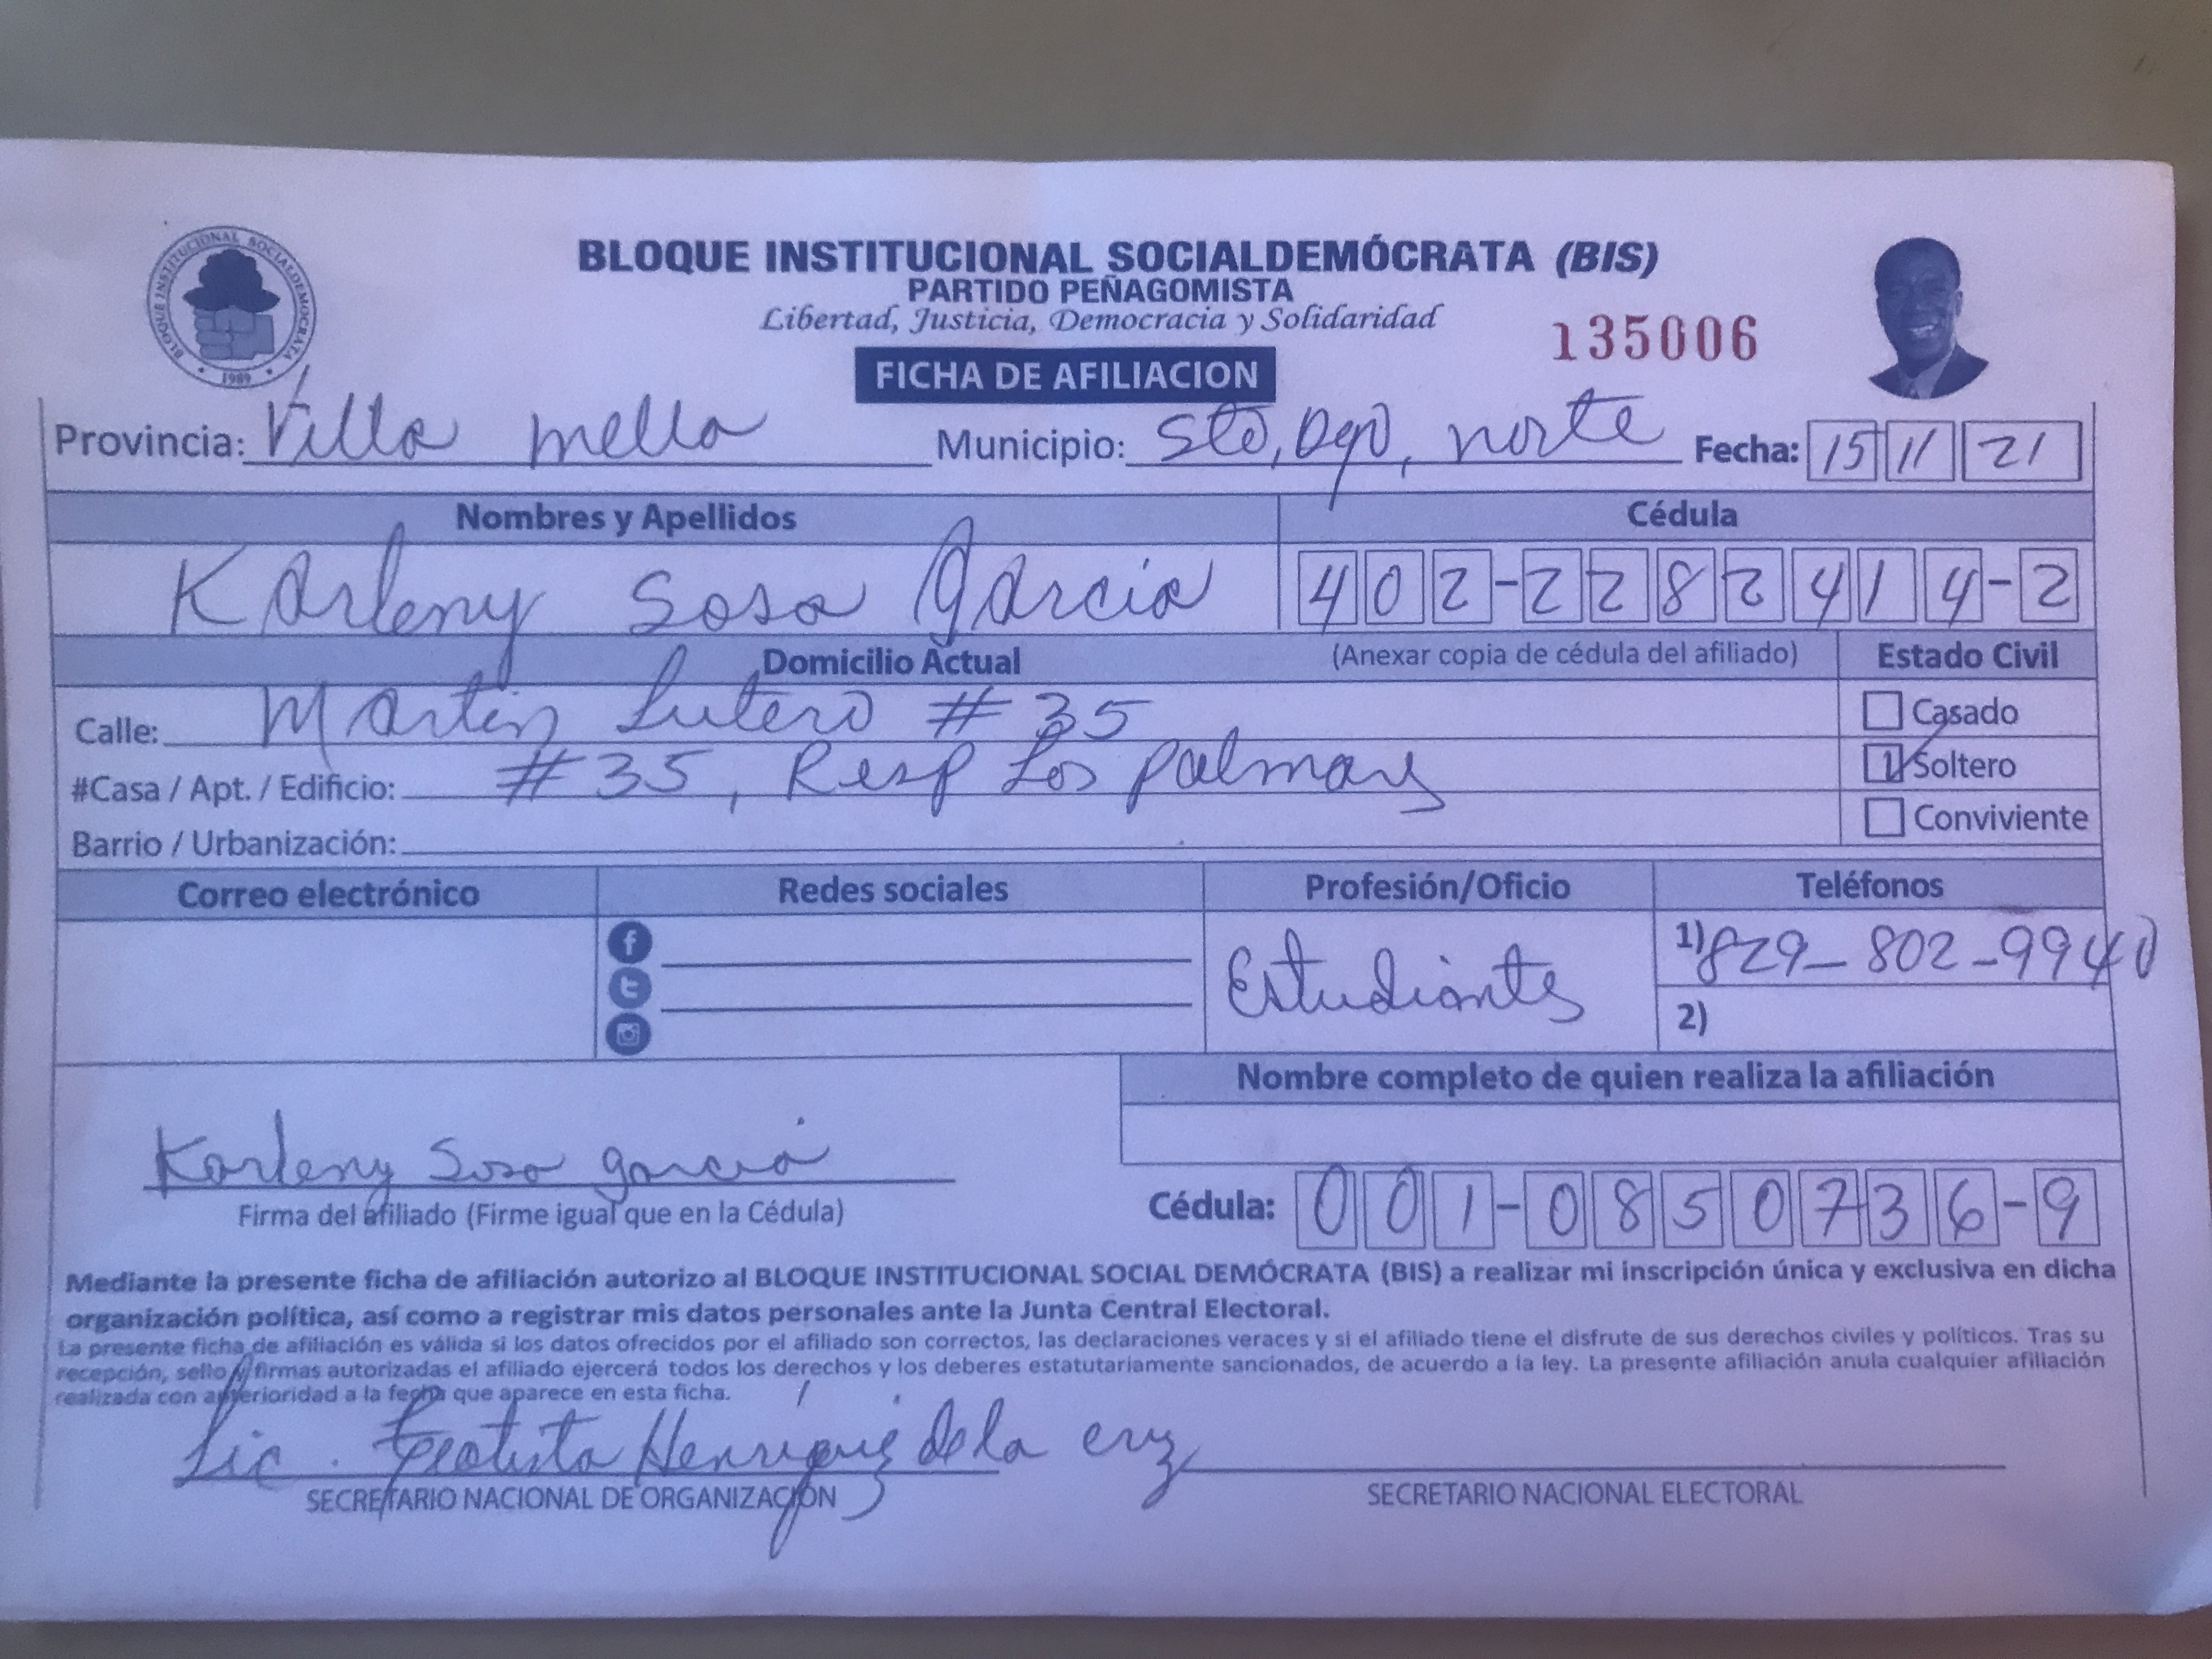 BLOQUE INSTITUCIONAL SOCIALDEMÓCRATA (BIS)
PARTIDO PEÑAGOMISTA
Libertad, Justicia, Democracia y Solidaridad
135006
FICHA DE AFILIACION
BLOQUE INSTITUCIONAL SOCIALDEMOCRATA
1989
Provincia: Villa mella Municipio: Sto, Dgo, norte Fecha: 15 11 21
Nombres y Apellidos Cédula
Karleny Sosa Garcia 402-2282414-2
Domicilio Actual (Anexar copia de cédula del afiliado) Estado Civil
Calle: Martin Lutero #35 Casado
#Casa / Apt. / Edificio: #35, Resp Los palmares Soltero
Barrio / Urbanización: Conviviente
Correo electrónico Redes sociales Profesión/Oficio Teléfonos
Estudiante 1) 829-802-9940
2)
Nombre completo de quien realiza la afiliación
Karleny Sosa garcia
Firma del afiliado (Firme igual que en la Cédula) Cédula: 001-0850736-9
Mediante la presente ficha de afiliación autorizo al BLOQUE INSTITUCIONAL SOCIAL DEMÓCRATA (BIS) a realizar mi inscripción única y exclusiva en dicha
organización política, así como a registrar mis datos personales ante la Junta Central Electoral.
La presente ficha de afiliación es válida si los datos ofrecidos por el afiliado son correctos, las declaraciones veraces y si el afiliado tiene el disfrute de sus derechos civiles y políticos. Tras su
recepción, sello y firmas autorizadas el afiliado ejercerá todos los derechos y los deberes estatutariamente sancionados, de acuerdo a la ley. La presente afiliación anula cualquier afiliación
realizada con anterioridad a la fecha que aparece en esta ficha.
Lic. Henriquez de la cruz
SECRETARIO NACIONAL DE ORGANIZACIÓN SECRETARIO NACIONAL ELECTORAL